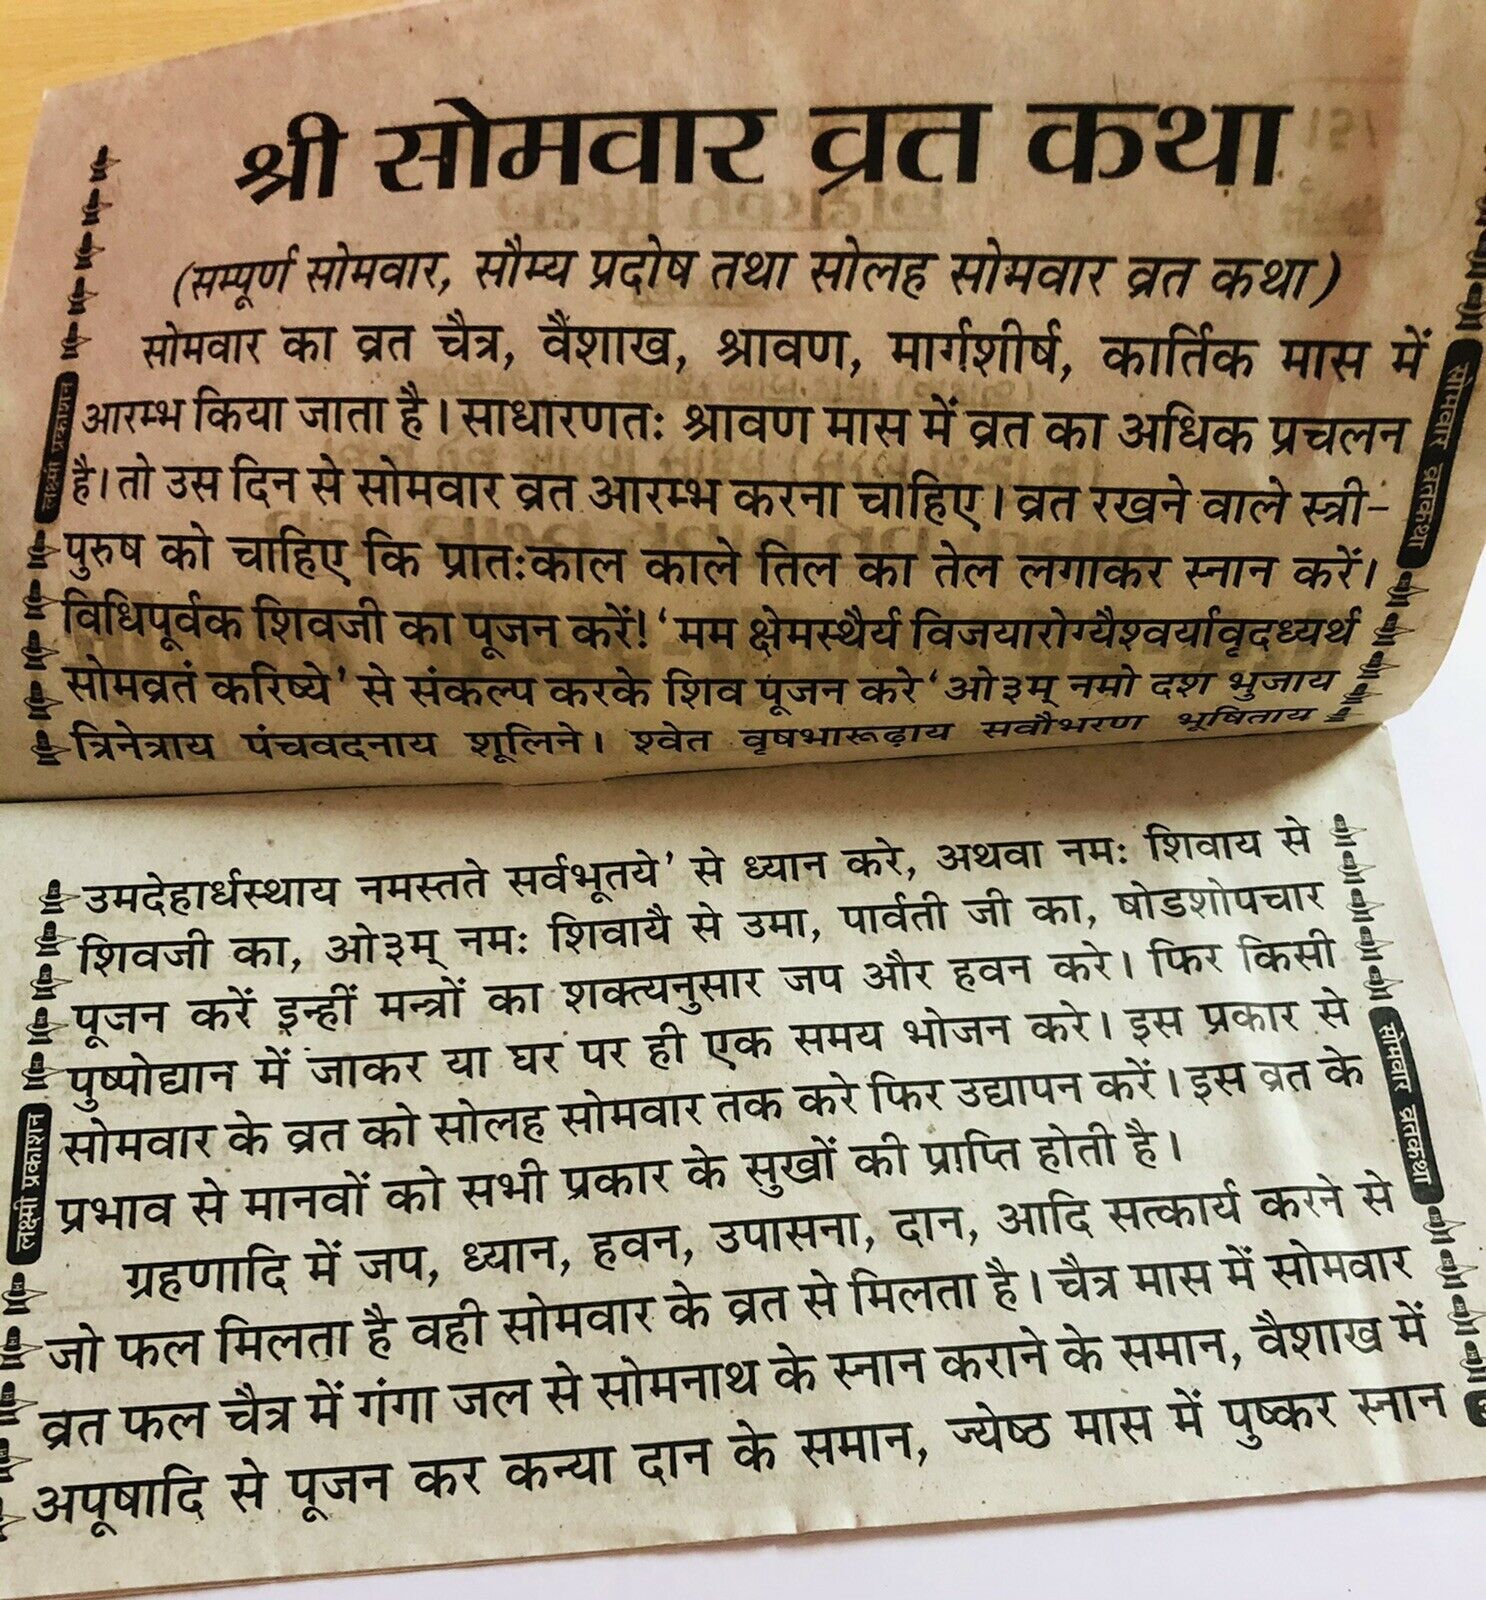 श्री सोमवार व्रत कथा
(सम्पूर्ण सोमवार, सौम्य प्रदोष तथा सोलह सोमवार व्रत कथा)
सोमवार का व्रत चैत्र, वैशाख, श्रावण, मार्गशीर्ष, कार्तिक मास में
आरम्भ किया जाता है। साधारणतः श्रावण मास में व्रत का अधिक प्रचलन
है। तो उस दिन से सोमवार व्रत आरम्भ करना चाहिए। व्रत रखने वाले स्त्री-
पुरुष को चाहिए कि प्रातःकाल काले तिल का तेल लगाकर स्नान करें।
विधिपूर्वक शिवजी का पूजन करें! ‘मम क्षेमस्थैर्य विजयारोग्यैश्वर्यावृदध्यर्थ
सोमव्रतं करिष्ये’ से संकल्प करके शिव पूजन करे ‘ओ३म् नमो दश भुजाय
त्रिनेत्राय पंचवदनाय शूलिने। श्वेत वृषभारूढ़ाय सर्वोभरण भूषिताय
लक्ष्मी प्रकाशन
सोमवार व्रतकथा
उमदेहार्धस्थाय नमस्तते सर्वभूतये’ से ध्यान करे, अथवा नमः शिवाय से
शिवजी का, ओ३म् नमः शिवायै से उमा, पार्वती जी का, षोडशोपचार
पूजन करें इन्हीं मन्त्रों का शक्त्यनुसार जप और हवन करे। फिर किसी
पुष्पोद्यान में जाकर या घर पर ही एक समय भोजन करे। इस प्रकार से
सोमवार के व्रत को सोलह सोमवार तक करे फिर उद्यापन करें। इस व्रत के
प्रभाव से मानवों को सभी प्रकार के सुखों की प्राप्ति होती है।
ग्रहणादि में जप, ध्यान, हवन, उपासना, दान, आदि सत्कार्य करने से
जो फल मिलता है वही सोमवार के व्रत से मिलता है। चैत्र मास में सोमवार
व्रत फल चैत्र में गंगा जल से सोमनाथ के स्नान कराने के समान, वैशाख में
अपूषादि से पूजन कर कन्या दान के समान, ज्येष्ठ मास में पुष्कर स्नान
लक्ष्मी प्रकाशन
सोमवार व्रतकथा